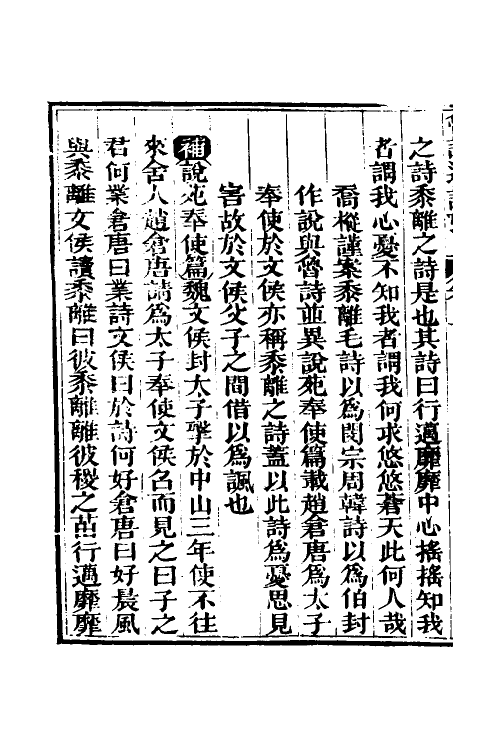 之詩黍離之詩是也其詩曰行邁靡靡中心搖搖知我
者謂我心憂不知我者謂我何求悠悠蒼天此何人哉
喬樅謹案黍離毛詩以為閔宗周韓詩以為伯封
作說與魯詩並異說苑奉使篇載趙倉唐為太子
奉使於文侯亦稱黍離之詩蓋以此詩為憂思見
害故於文侯父子之間借以為諷也
補說苑奉使篇魏文侯封太子擊於中山三年使不往
來舍人趙倉唐請為太子奉使文侯名而見之曰子之
君何業倉唐曰業詩文侯曰於詩何好倉唐曰好晨風
與黍離文侯讀黍離曰彼黍離離彼稷之苗行邁靡靡